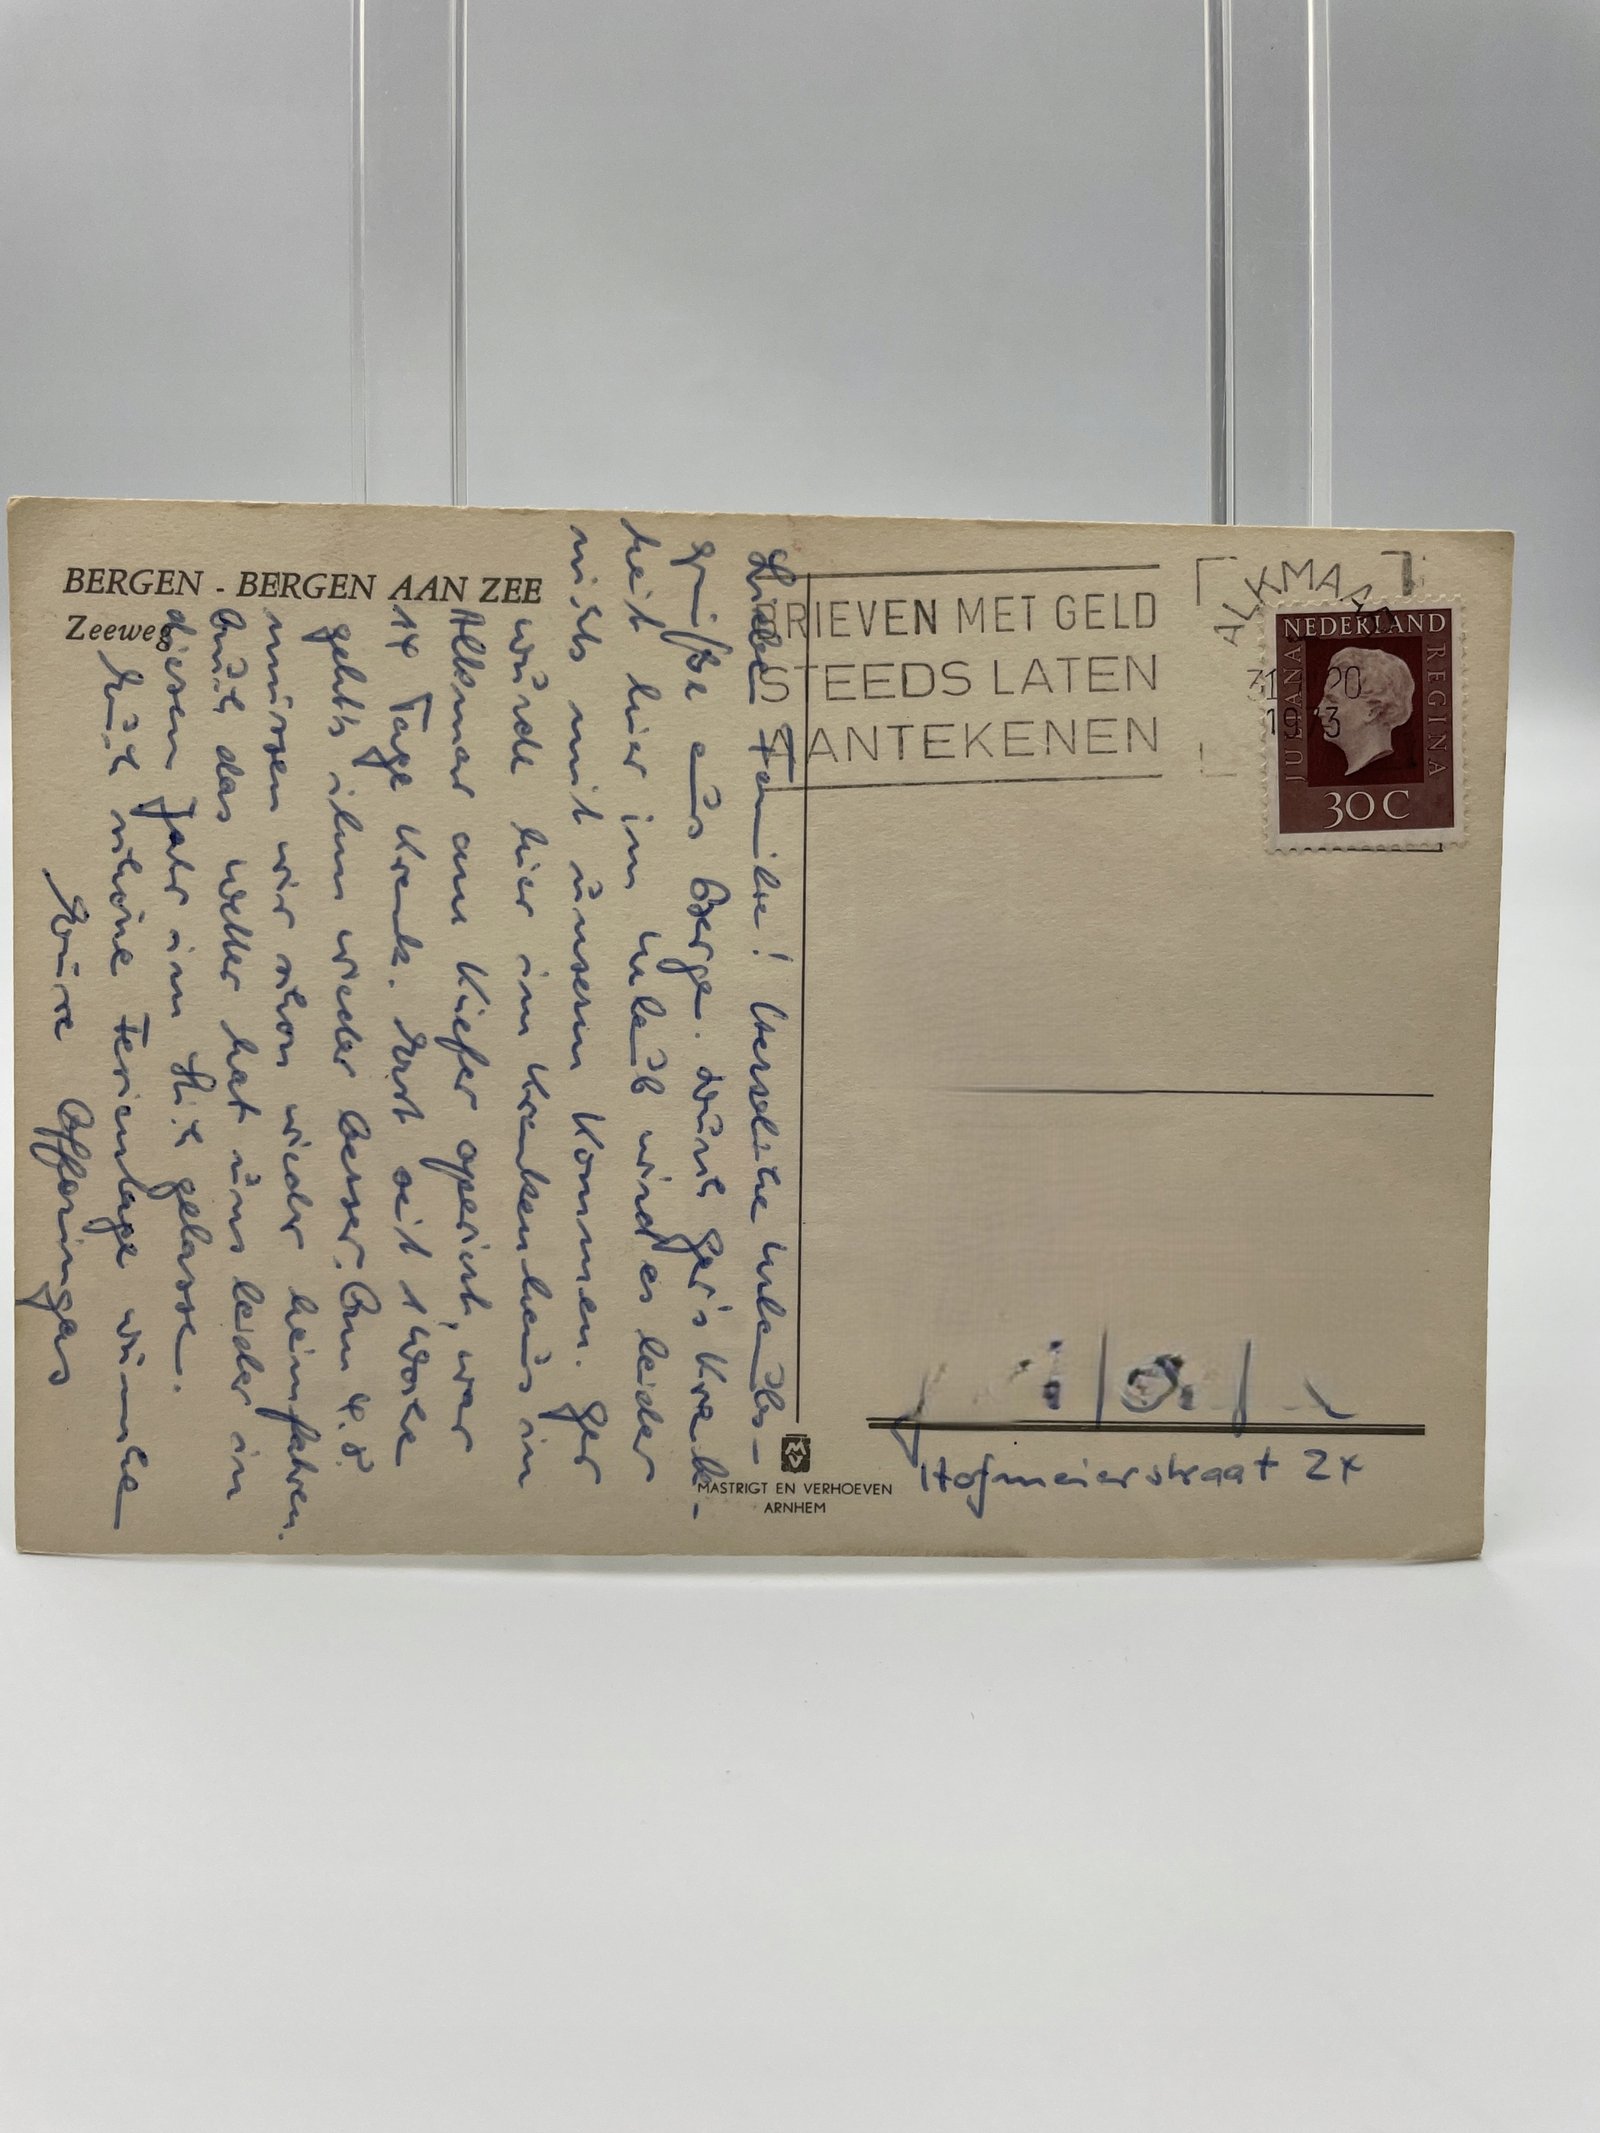 BERGEN - BERGEN AAN ZEE
Zeeweg
BRIEVEN MET GELD
STEEDS LATEN
AANTEKENEN
ALKMAAR
31 20
1973
NEDERLAND
JULIANA
REGINA
30 C
Liebe Familie! Herzliche Urlaubs-
grüße aus Bergen. Durch Ger's Krank-
heit hier im Urlaub wird es leider
nichts mit unserm Kommen. Ger
wurde hier im Krankenhaus in
Alkmar am Kiefer operiert, war
14 Tage krank. Erst seit 1 Woche
geht's ihm wieder besser. Am 4.8
müssen wir schon wieder heimfahren.
Auch das Wetter hat uns leider in
diesem Jahr im Stich gelassen.
Euch schöne Ferientage wünschen
Eure
MASTRIGT EN VERHOEVEN
ARNHEM
Hofmeierstraat 2x